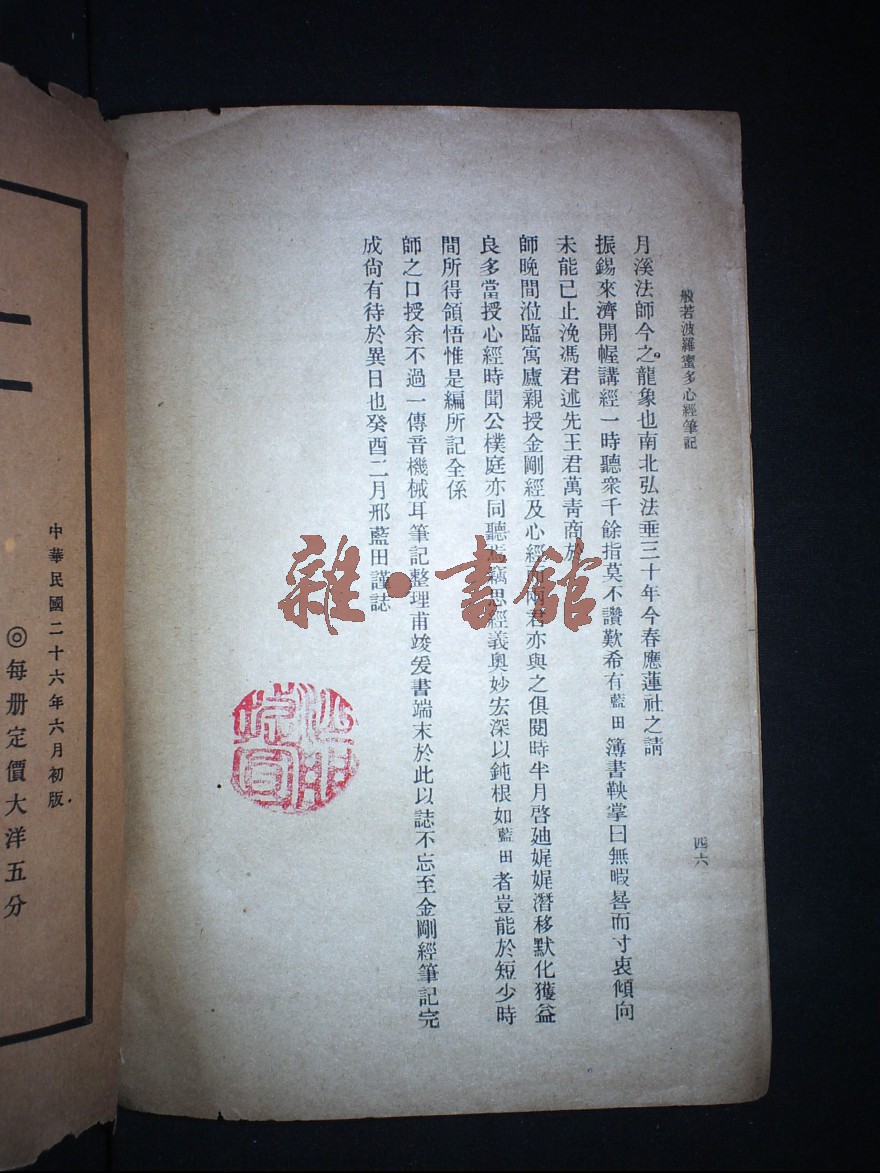 般若波羅蜜多心經筆記
四六
月溪法師今之龍象也南北弘法垂三十年今春應蓮社之請
振錫來濟開幄講經一時聽衆千餘指莫不讚歎希有藍田簿書鞅掌日無暇晷而寸衷傾向
未能已止浼馮君述先王君萬靑商於
師晚間涖臨寓廬親授金剛經及心經而兩君亦與之俱閱時半月啓廸娓娓潛移默化獲益
良多當授心經時聞公樸庭亦同聽焉竊思經義奧妙宏深以鈍根如藍田者豈能於短少時
間所得領悟惟是編所記全係
師之口授余不過一傳音機械耳筆記整理甫竣爰書端末於此以誌不忘至金剛經筆記完
成尙有待於異日也癸酉二月邢藍田謹誌
雜·書館
中華民國二十六年六月初版
◎每册定價大洋五分